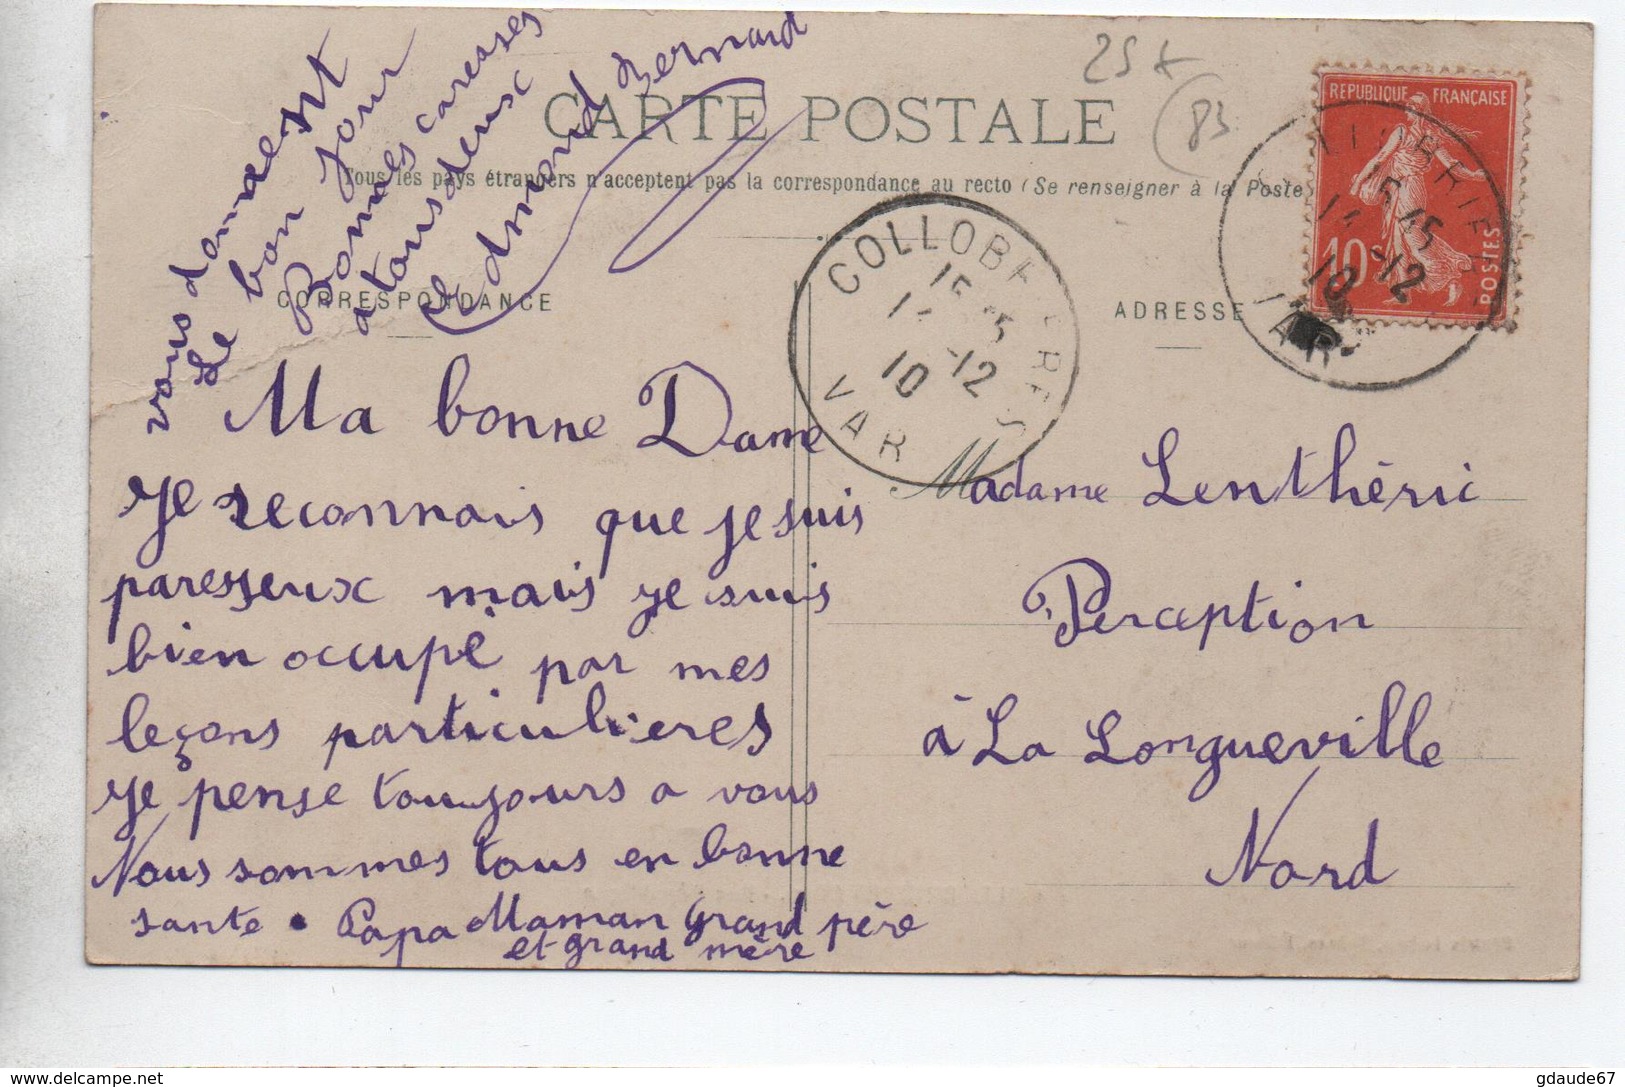 CARTE POSTALE
Tous les pays étrangers n'acceptent pas la correspondance au recto (Se renseigner à la Poste
CORRESPONDANCE
ADRESSE
25
83
REPUBLIQUE FRANÇAISE
10
POSTES
COLLOBRIERES
12
10
VAR
Ma bonne Dame
Je reconnais que je suis
paresseux mais je suis
bien occupé par mes
leçons particulieres
Je pense toujours a vous
Nous sommes tous en bonne
sante . Papa Maman Grand père
et grand mère
vous donnent
le bon jour
Bonnes caresses
a tous deux
Edmond Bernard
Madame Lenthéric
Perception
à La Longueville
Nord
www.delcampe.net
gdaude67